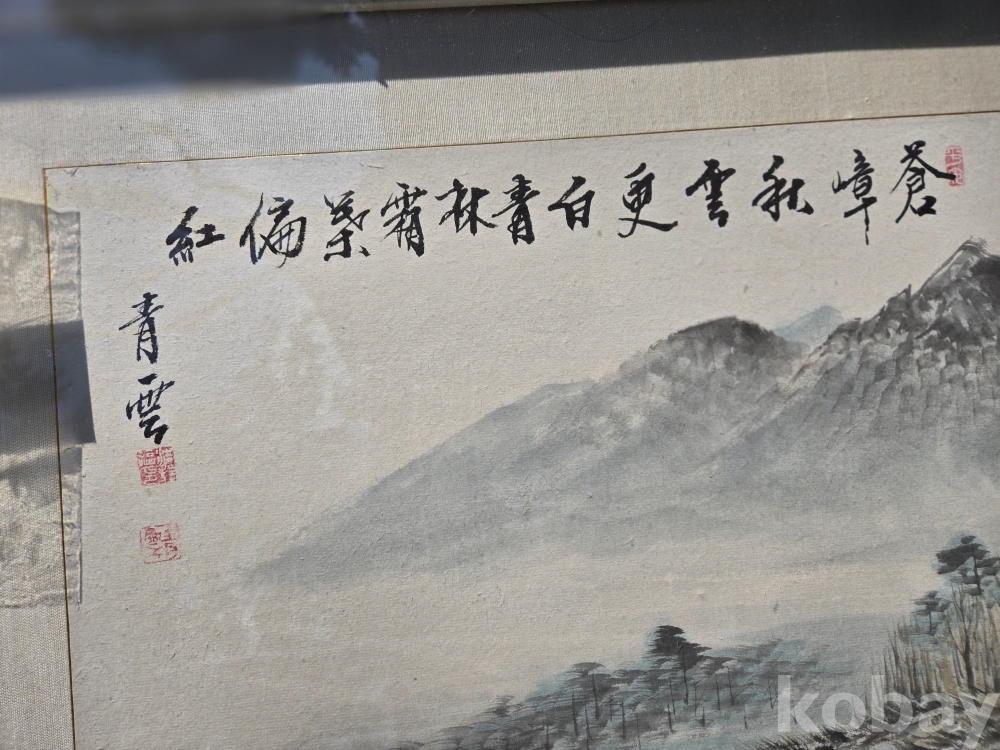 蒼嶂秋雲更白青林霜葉偏紅
青雲
kobay